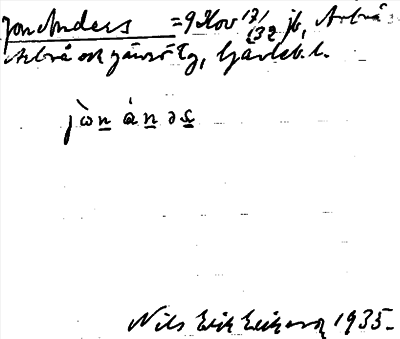 Jon Anders = 9 Nov 13/132 jb, Arbrå
Arbrå ok järvsö tg, Gävleb. l.
jὼn ánəs
Nils Erik Eriksson 1935.